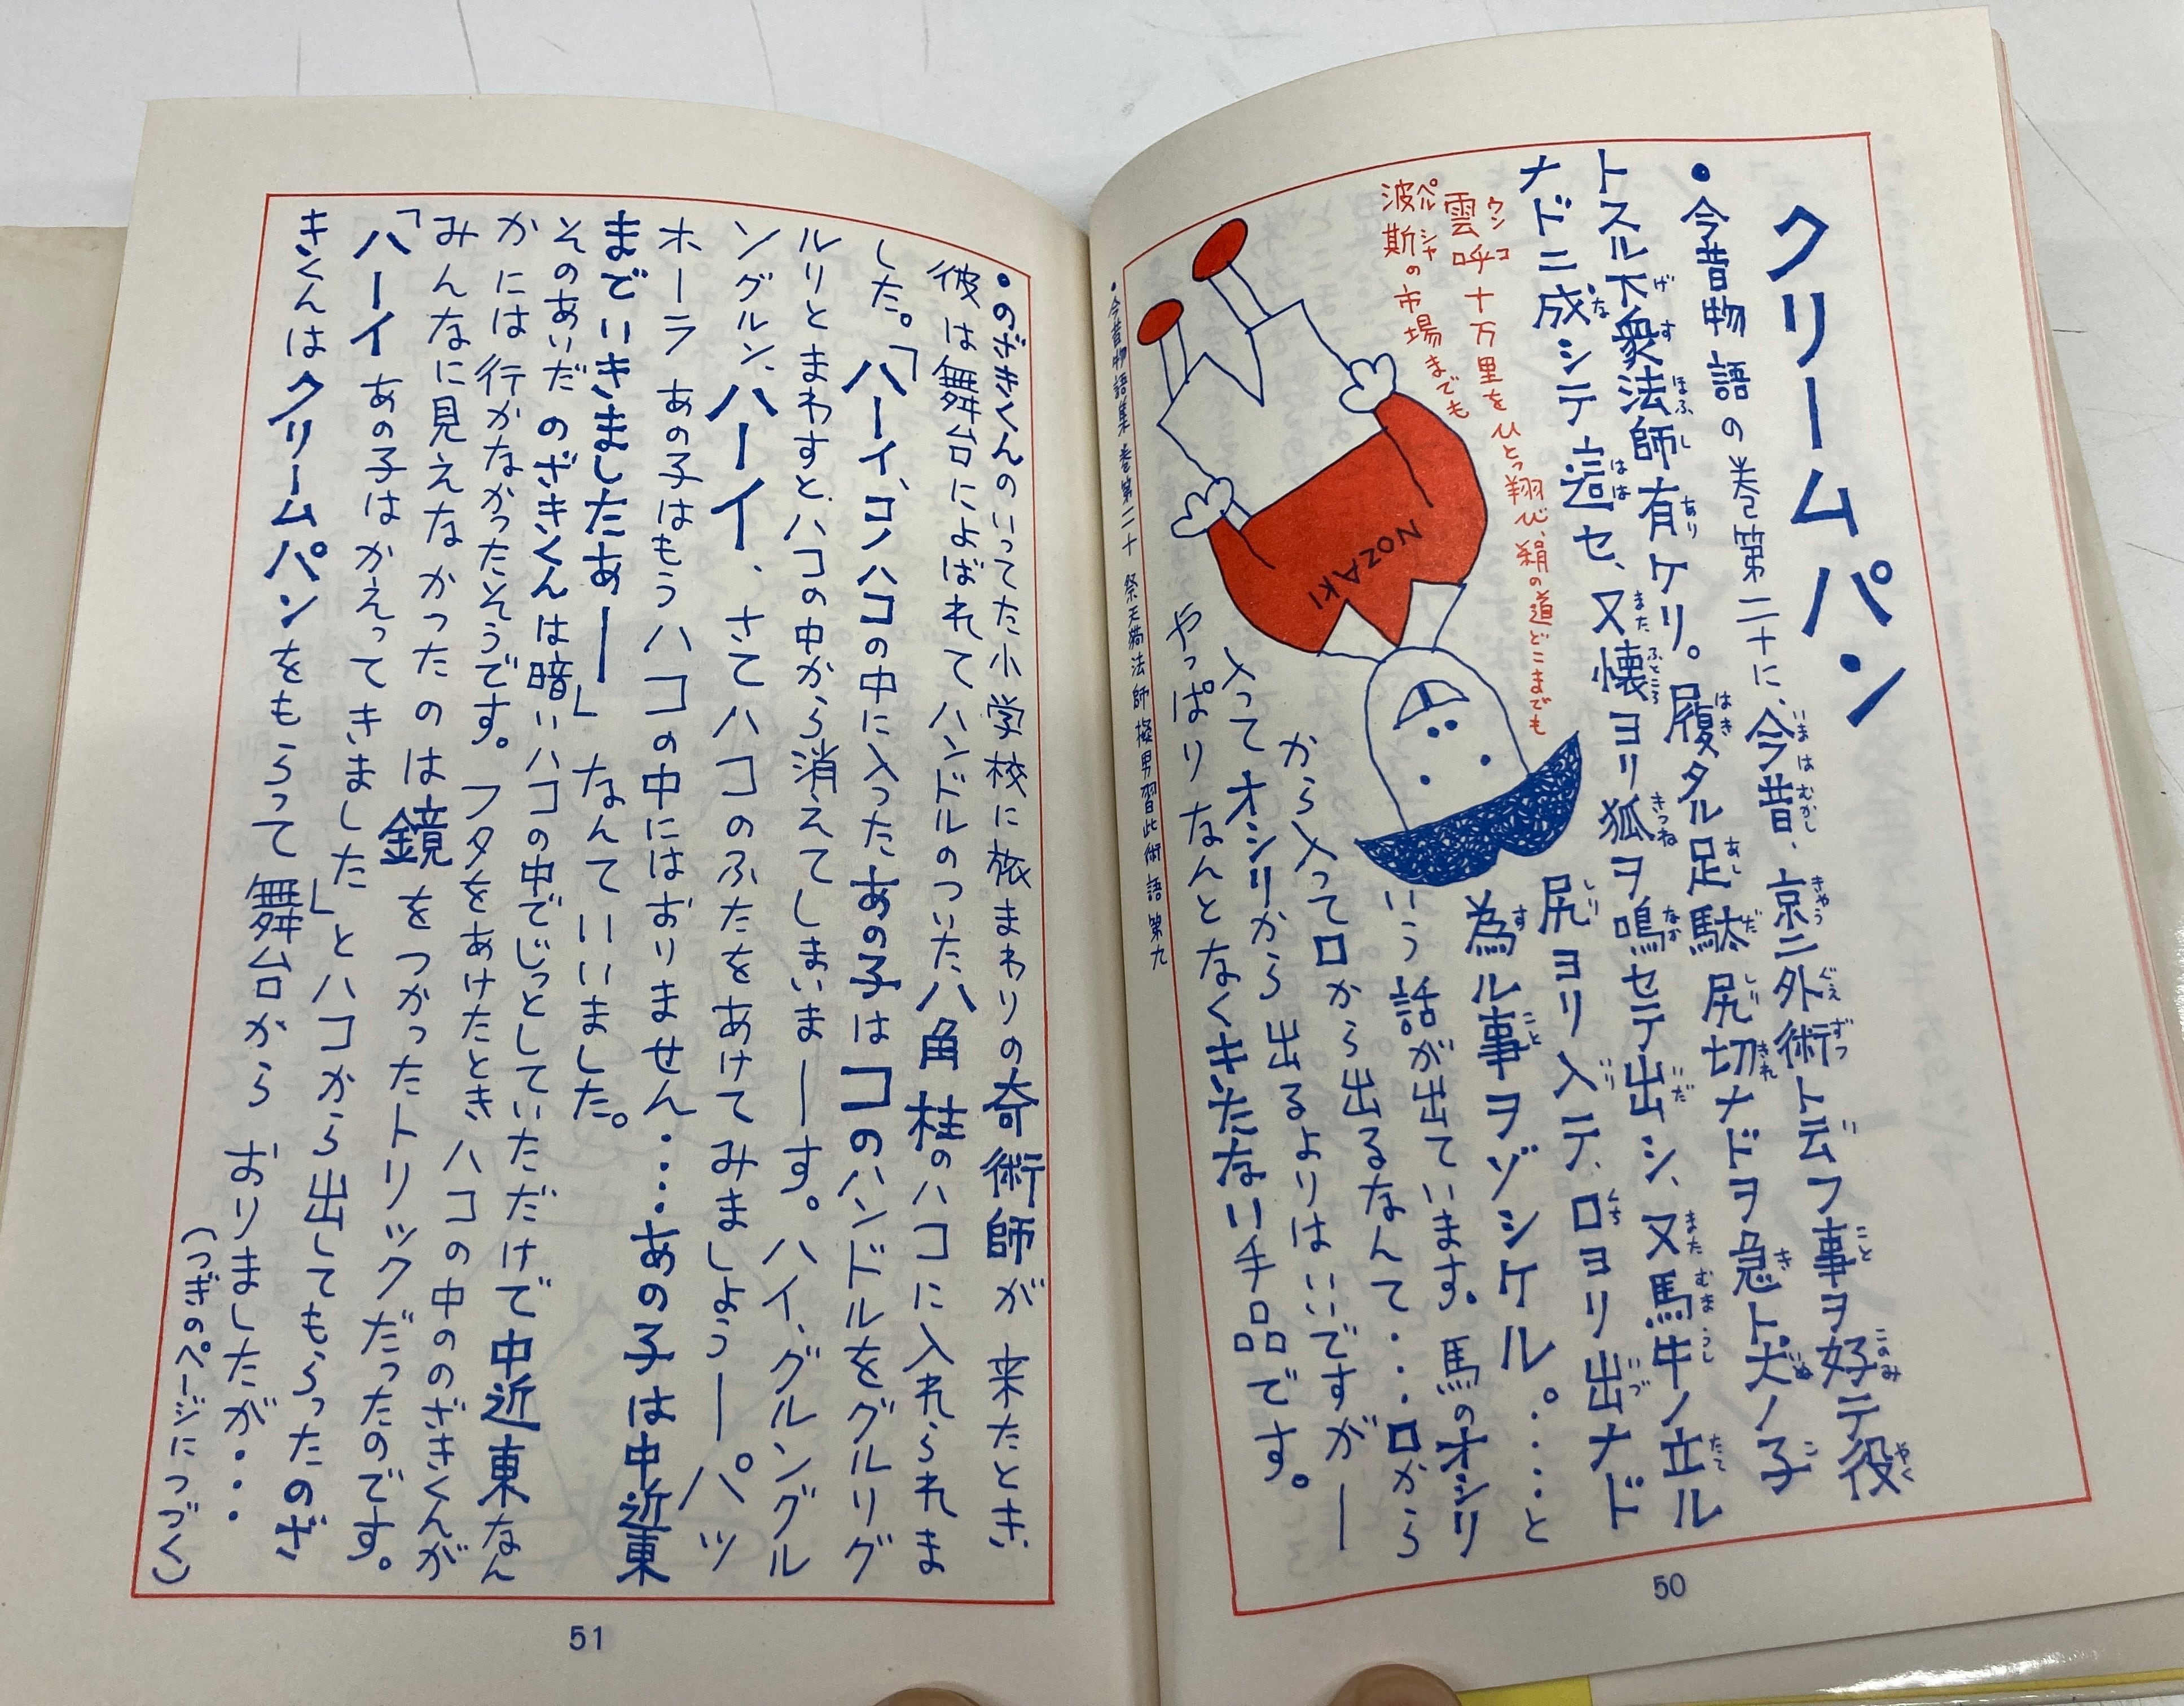 クリームパン
•今昔物語の巻第二十に、今昔、京ニ外術トデフ事ヲ好テ役
トスル下衆法師有ケリ。履タル足駄尻切ナドヲ急ト犬ノ子
ナドニ成シテ這セ、又懐ヨリ狐ヲ鳴セテ出シ、又馬牛ノ立ル
尻ヨリ入テ、口ヨリ出ナド
為ル事ヲゾシケル。・・・・と
いう話が出ています。馬のオシリ
から入って口から出るなんて・・・口から
入ってオシリから出るよりはいいですがー
やっぱりなんとなくきたない手品です。
雲呼十万里をひとっ翔び、絹の道どこまでも
波斯の市場までも
NOZAKI
•今昔物語集 巻第二十 祭天狗法師擬男習此術語第九
50
•のざきくんのいってた小学校に旅まわりの奇術師が来たとき
彼は舞台によばれてハンドルのついた八角柱のハコに入れられま
した。「ハーイ、コノハコの中に入ったあの子はコのハンドルをグルリグ
ルリとまわすと、ハコの中から消えてしまいまーす。ハイ、グルングル
ングルン、ハーイ、さてハコのふたをあけてみましょうーパッ
ホーラ あの子はもうハコの中にはおりません・・・あの子は中近東
までいきましたあー」なんていいました。
そのあいだのざきくんは暗いハコの中でじっとしていただけで中近東なん
かには行かなかったそうです。フタをあけたときハコの中ののざきくんが
みんなに見えなかったのは鏡をつかったトリックだったのです。
「ハーイ あの子はかえってきました」とハコから出してもらったのざ
きくんはクリームパンをもらって舞台から おりましたが・・・
(つぎのページにつづく)
51